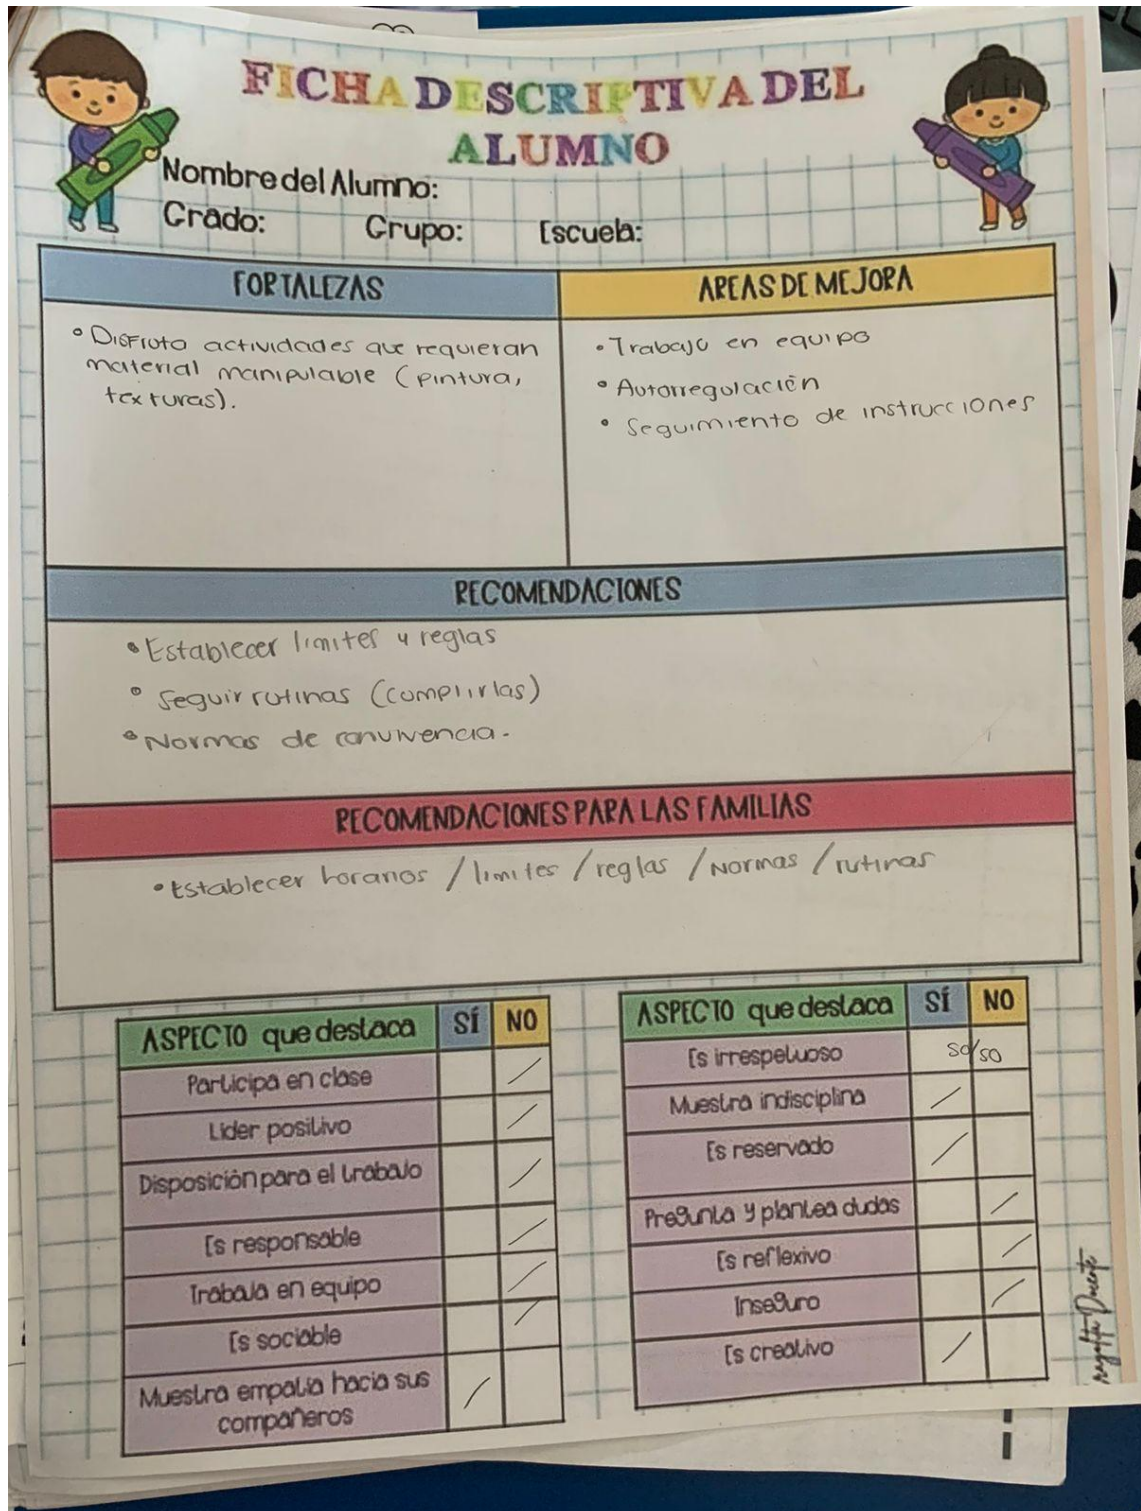 FICHA DESCRIPTIVA DEL
ALUMNO
Nombre del Alumno:
Grado: Grupo: Escuela:
FORTALEZAS
• Disfruta actividades que requieran
material manipulable (pintura,
texturas).
AREAS DE MEJORA
• Trabajo en equipo
• Autorregulación
• Seguimiento de instrucciones
RECOMENDACIONES
• Establecer limites y reglas
• Seguir rutinas (cumplirlas)
• Normas de convivencia.
RECOMENDACIONES PARA LAS FAMILIAS
• Establecer horarios / limites / reglas / Normas / rutinas
ASPECTO que destaca SÍ NO
Participa en clase /
Lider positivo /
Disposición para el trabajo /
Es responsable /
Trabaja en equipo /
Es sociable /
Muestra empatia hacia sus /
compañeros
ASPECTO que destaca SÍ NO
Es irrespetuoso so/so
Muestra indisciplina /
Es reservado /
Pregunta y plantea dudas /
Es reflexivo /
Inseguro /
Es creativo /